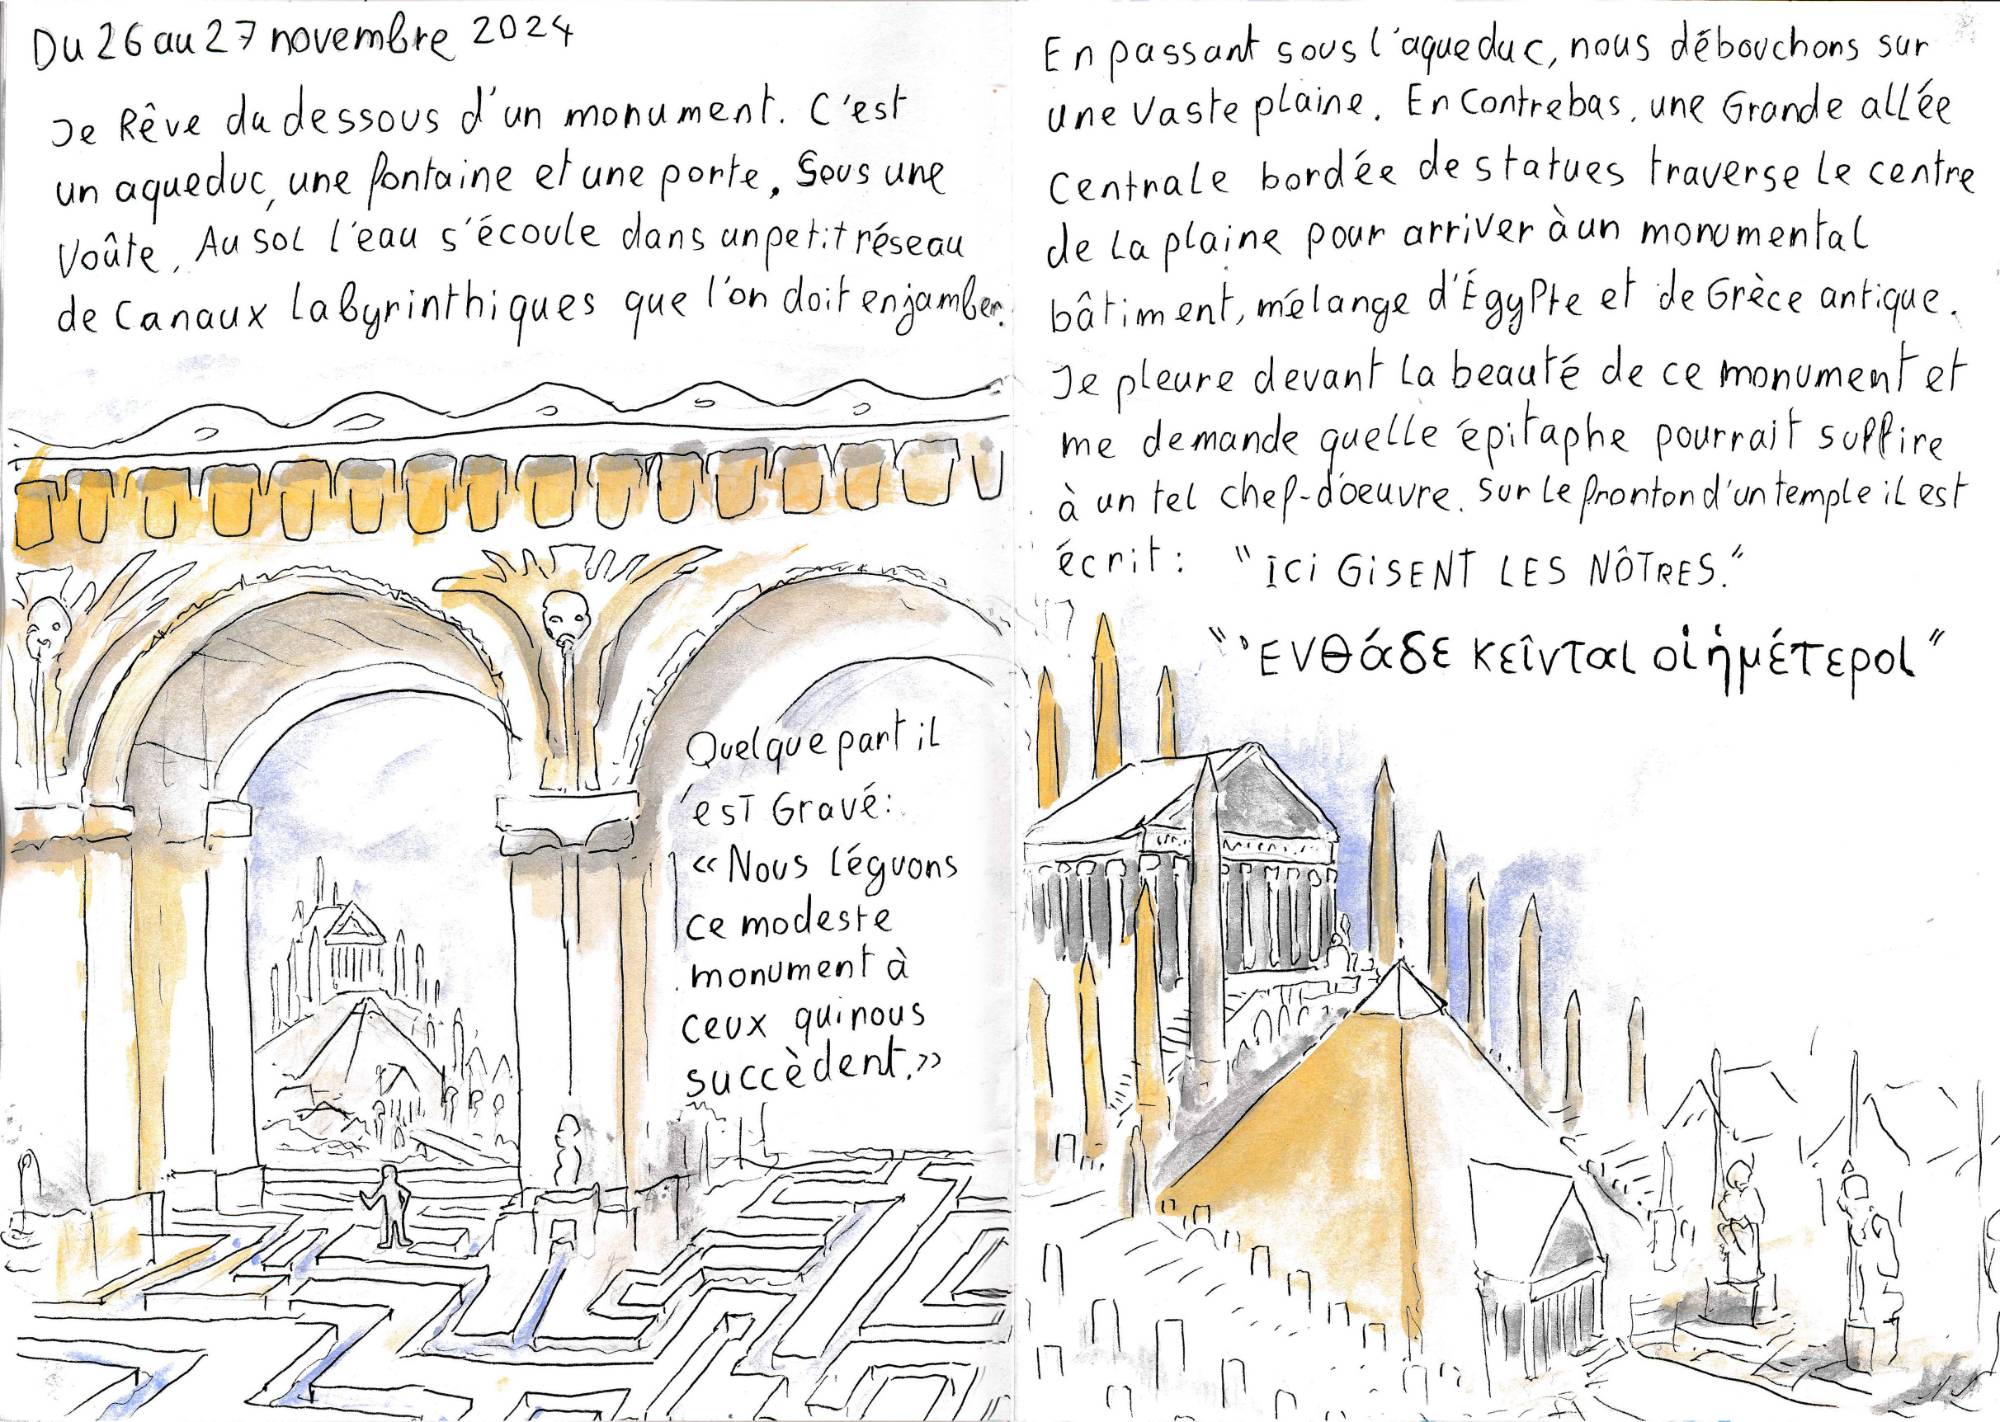 Du 26 au 27 novembre 2024
Je Rêve du dessous d'un monument. C'est
un aqueduc, une fontaine et une porte, Sous une
Voûte. Au sol l'eau s'écoule dans un petit réseau
de Canaux Labyrinthiques que l'on doit enjamber.
Quelque part il
est Gravé:
« Nous léguons
ce modeste
monument à
ceux qui nous
succèdent. »
En passant sous l'aqueduc, nous débouchons sur
une Vaste plaine. En Contrebas, une Grande allée
Centrale bordée de statues traverse le centre
de la plaine pour arriver à un monumental
bâtiment, mélange d'Égypte et de Grèce antique.
Je pleure devant la beauté de ce monument et
me demande quelle épitaphe pourrait suffire
à un tel chef-d'oeuvre. Sur le fronton d'un temple il est
écrit : "ICI GISENT LES NÔTRES."
"'Ενθάδε κεῖνται οἱ ἡμέτεροι"